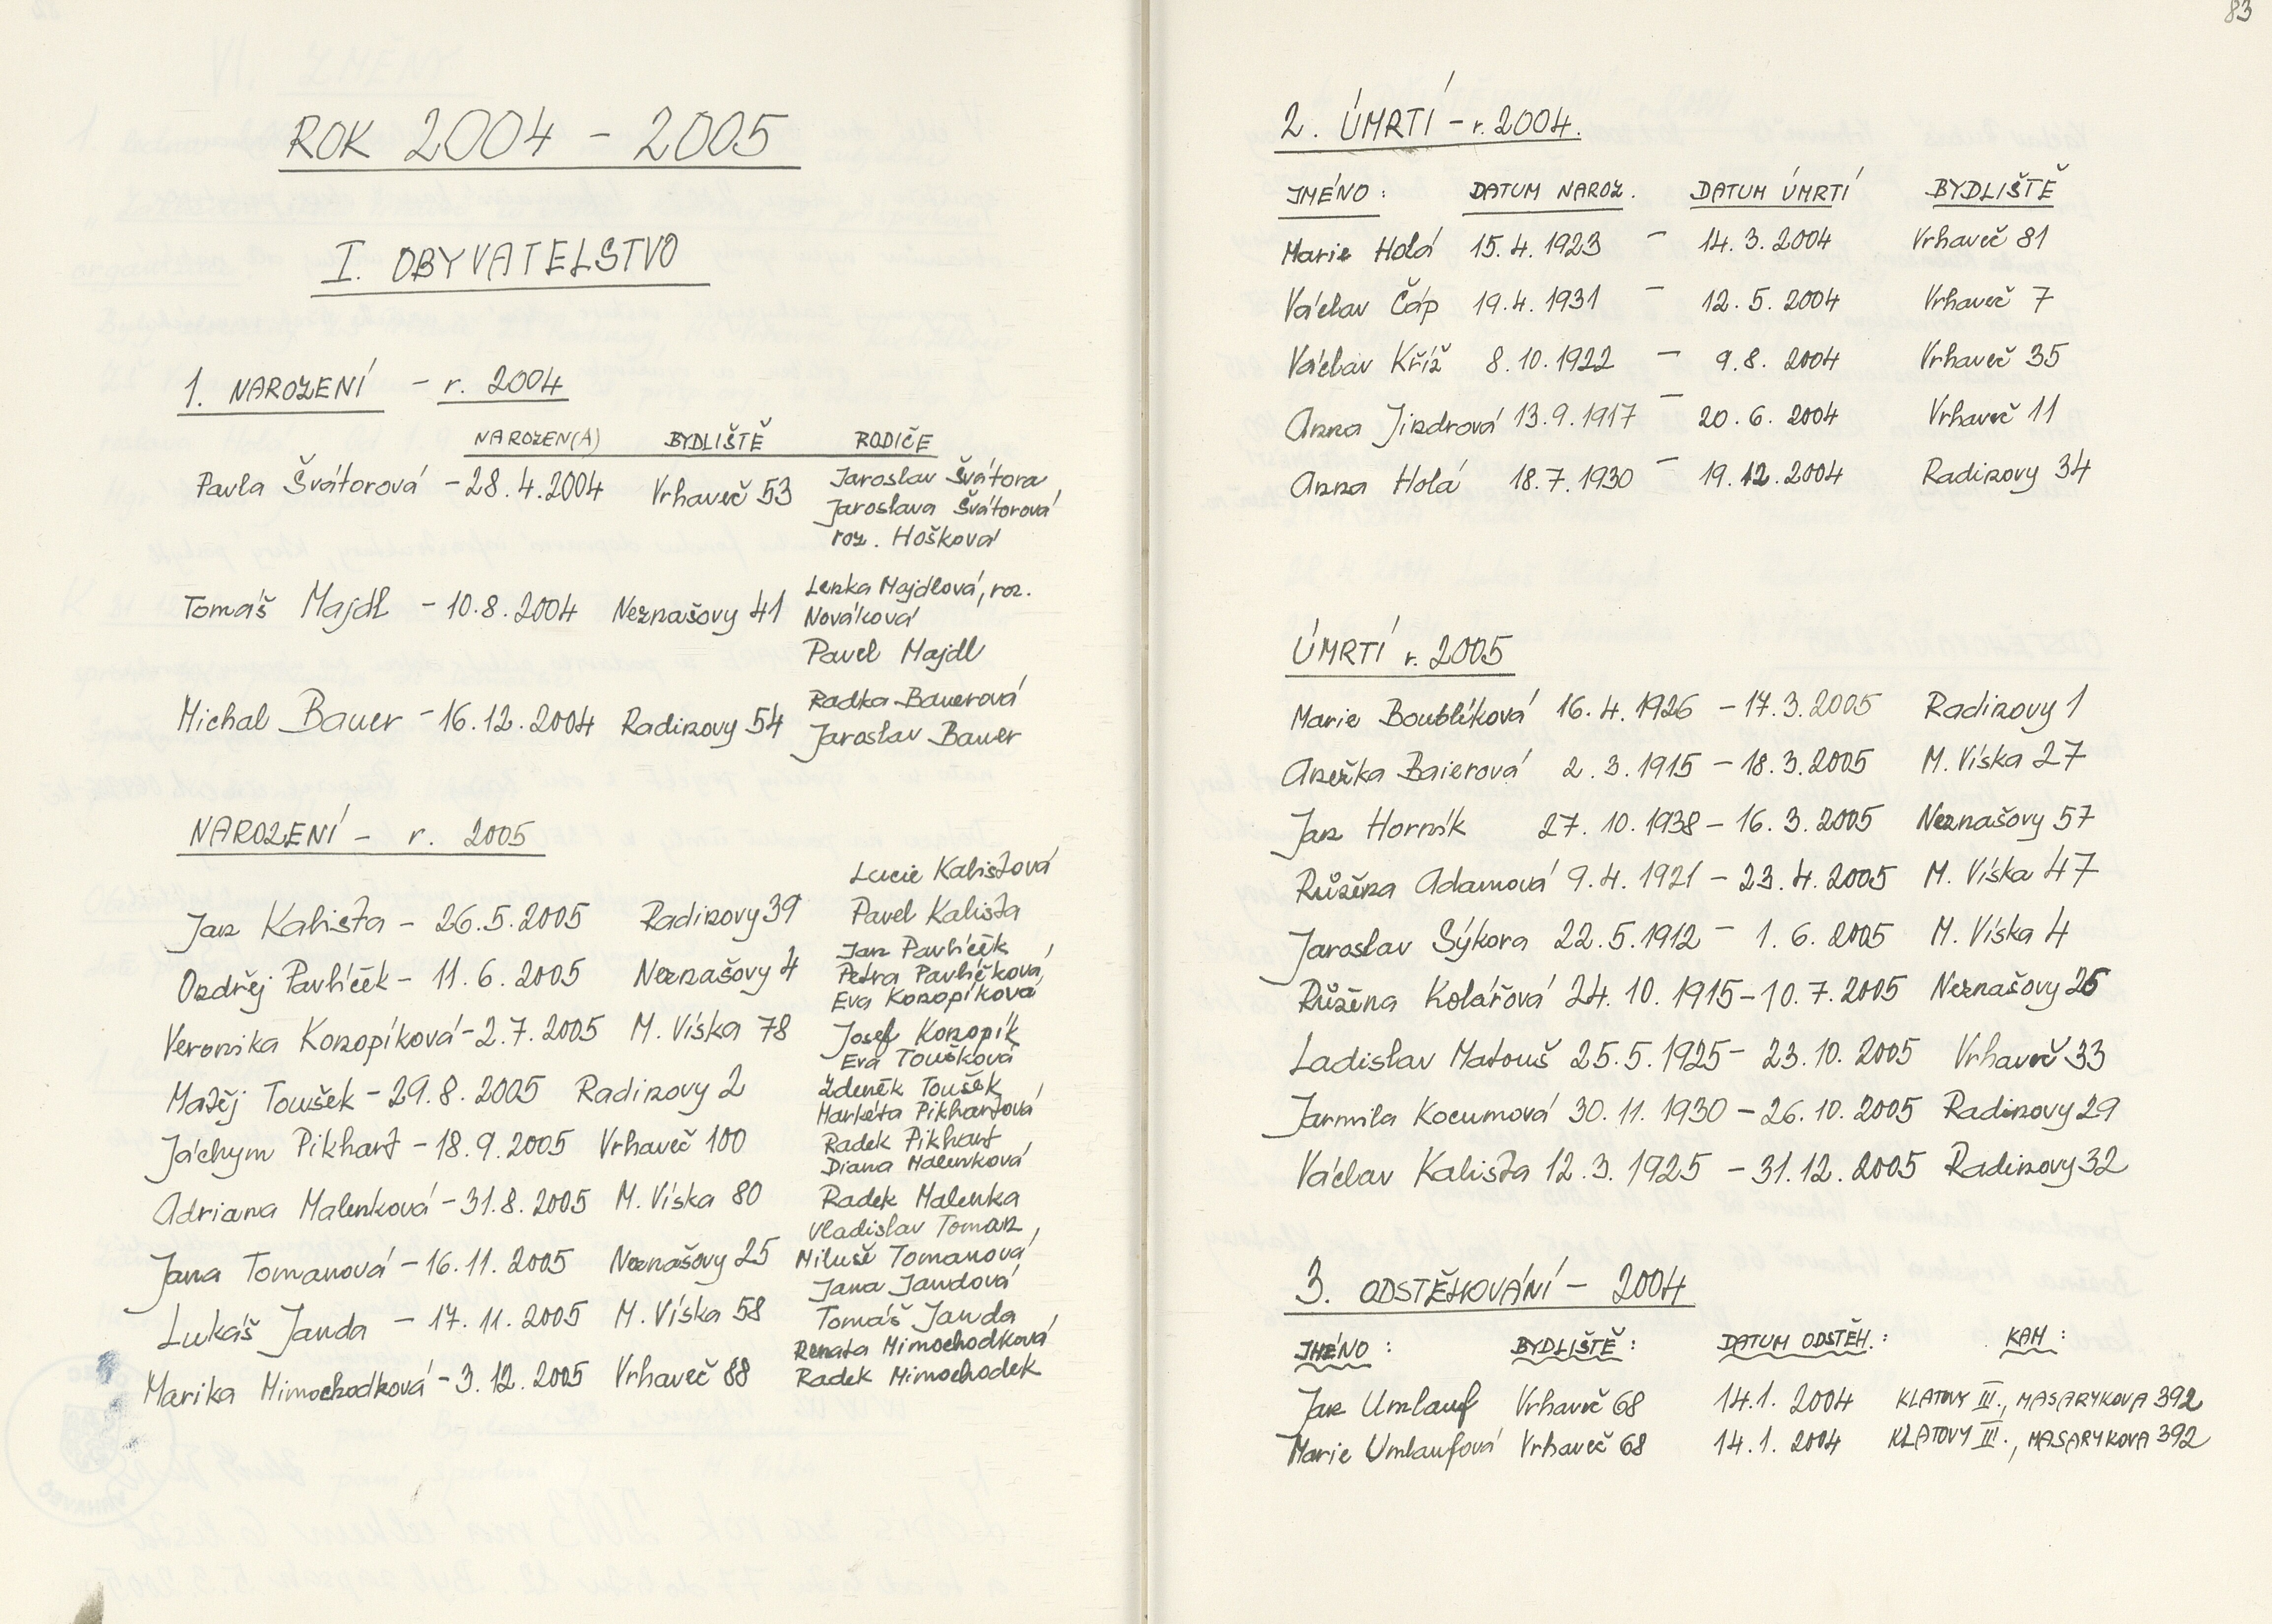 ROK 2004 - 2005
I. OBYVATELSTVO
1. NAROZENÍ - r. 2004
NAROZEN(A) BYDLIŠTĚ RODIČE
Pavla Švátorová - 28.4.2004 Vrhaveč 53 Jaroslav Švátora,
Jaroslava Švátorová
roz. Hošková
Lenka Majdlová, roz.
Tomáš Majdl - 10.8.2004 Neznašovy 41 Nováková
Pavel Majdl
Radka Bauerová
Michal Bauer - 16.12.2004 Radinovy 54 Jaroslav Bauer
NAROZENÍ - r. 2005
Lucie Kalistová
Jan Kalista - 26.5.2005 Radinovy 39 Pavel Kalista
Jan Pavlíček,
Ondřej Pavlíček - 11.6.2005 Neznašovy 4 Petra Pavlíčková,
Eva Konopíková
Veronika Konopíková - 2.7.2005 M. Víska 78 Josef Konopík
Eva Toušková
Matěj Toušek - 29.8.2005 Radinovy 2 Zdeněk Toušek
Markéta Pikhartová
Jáchym Pikhart - 18.9.2005 Vrhaveč 100 Radek Pikhart
Diana Malenková
Adriana Malenková - 31.8.2005 M. Víska 80 Radek Malenka
Vladislav Toman,
Jana Tomanová - 16.11.2005 Neznašovy 25 Miluše Tomanová
Jana Jandová
Lukáš Janda - 17.11.2005 M. Víska 58 Tomáš Janda
Renata Mimochodková
Marika Mimochodková - 3.12.2005 Vrhaveč 88 Radek Mimochodek
83
2. ÚMRTÍ - r. 2004.
JMÉNO: DATUM NAROZ. DATUM ÚMRTÍ BYDLIŠTĚ
Marie Holá 15.4.1923 - 14.3.2004 Vrhaveč 81
Václav Čáp 19.4.1931 - 12.5.2004 Vrhaveč 7
Václav Kříž 8.10.1922 - 9.8.2004 Vrhaveč 35
Anna Jindrová 13.9.1917 - 20.6.2004 Vrhaveč 11
Anna Holá 18.7.1930 - 19.12.2004 Radinovy 34
ÚMRTÍ r. 2005
Marie Boublíková 16.4.1926 - 17.3.2005 Radinovy 1
Anežka Baierová 2.3.1915 - 18.3.2005 M. Víska 27
Jan Horník 27.10.1938 - 16.3.2005 Neznašovy 57
Růžena Adamová 9.4.1921 - 23.4.2005 M. Víska 47
Jaroslav Sýkora 22.5.1912 - 1.6.2005 M. Víska 4
Růžena Kolářová 24.10.1915 - 10.7.2005 Neznašovy 26
Ladislav Matouš 25.5.1925 - 23.10.2005 Vrhaveč 33
Jarmila Kocumová 30.11.1930 - 26.10.2005 Radinovy 29
Václav Kalista 12.3.1925 - 31.12.2005 Radinovy 32
3. ODSTĚHOVÁNÍ - 2004
JMÉNO: BYDLIŠTĚ: DATUM ODSTĚH.: KAM:
Jan Umlauf Vrhaveč 68 14.1.2004 KLATOVY III., MASARYKOVA 392
Marie Umlaufová Vrhaveč 68 14.1.2004 KLATOVY III., MASARYKOVA 392